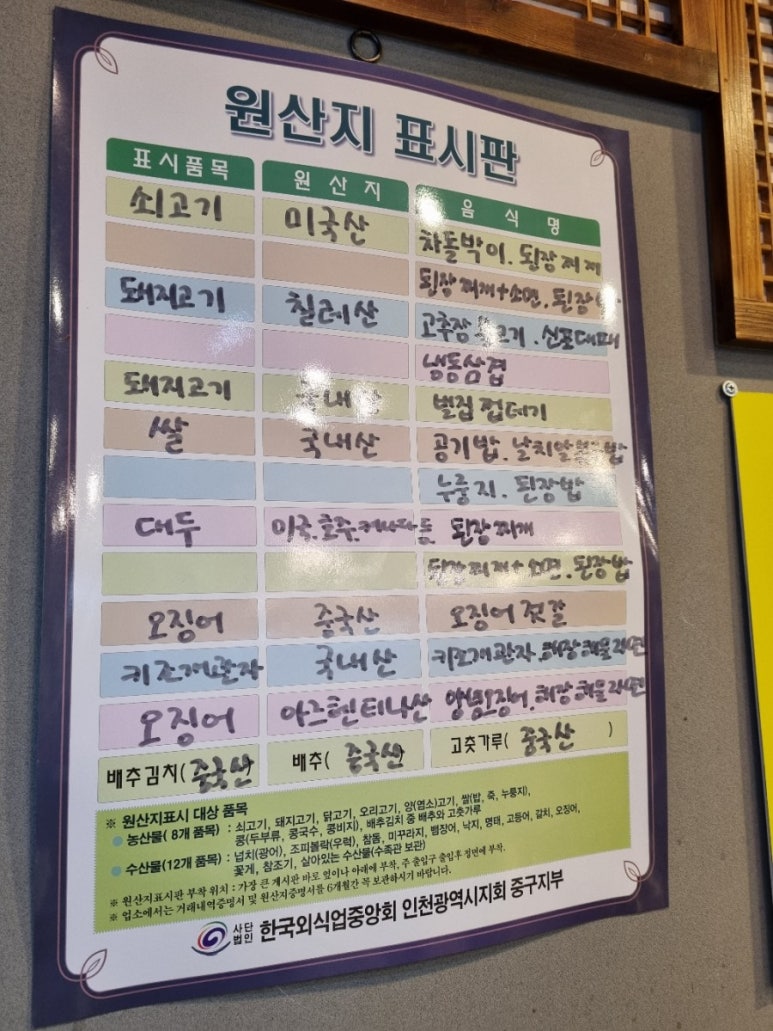 원산지 표시판
표시품목 원산지 음식명
쇠고기 미국산 차돌박이. 된장찌개
된장찌개+소면. 된장
돼지고기 칠레산 고추장 불고기. 신포대패
냉동삼겹
돼지고기 국내산 벌집껍데기
쌀 국내산 공기밥. 날치알볶음밥
누룽지. 된장밥
대두 미국.호주.캐나다등 된장찌개
된장찌개+소면.된장밥
오징어 중국산 오징어젓갈
키조개관자 국내산 키조개관자.해장해물라면
오징어 아르헨티나산 양념오징어.해장해물라면
배추김치(중국산) 배추(중국산) 고춧가루(중국산)
※ 원산지표시 대상 품목
농산물( 8개 품목) : 쇠고기, 돼지고기, 닭고기, 오리고기, 양(염소)고기, 쌀(밥, 죽, 누룽지),
콩(두부류, 콩국수, 콩비지), 배추김치 중 배추와 고춧가루
수산물(12개 품목) : 넙치(광어), 조피볼락(우럭), 참돔, 미꾸라지, 뱀장어, 낙지, 명태, 고등어, 갈치, 오징어,
꽃게, 참조기, 살아있는 수산물(수족관 보관)
※ 원산지표시판 부착 위치 : 가장 큰 게시판 바로 옆이나 아래에 부착, 주 출입구 출입후 정면에 부착.
※ 업소에서는 거래내역증명서 및 원산지증명서를 6개월간 꼭 보관하시기 바랍니다.
사단법인 한국외식업중앙회 인천광역시지회 중구지부